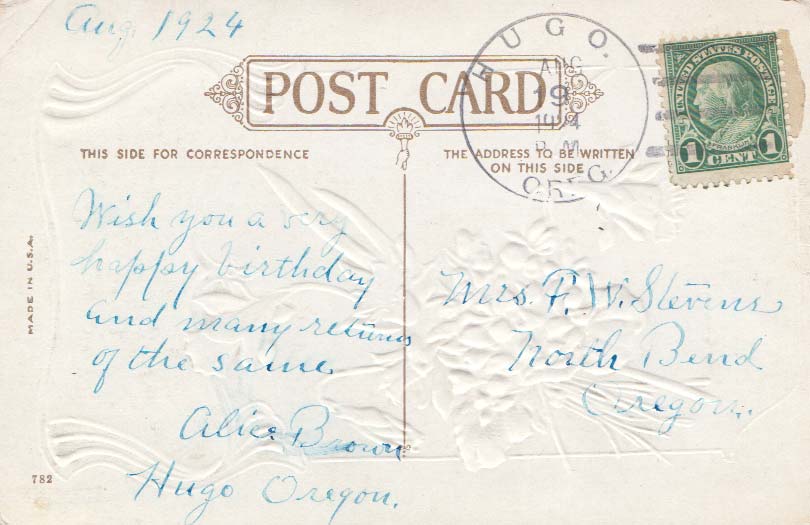 Aug. 1924
POST CARD
HUGO.
AUG
19
1924
P M
OREG.
UNITED STATES POSTAGE
FRANKLIN
1 CENT 1
THIS SIDE FOR CORRESPONDENCE
THE ADDRESS TO BE WRITTEN
ON THIS SIDE
Wish you a very
happy birthday
and many returns
of the same
Alice Brown
Hugo Oregon.
Mrs. F. W. Stevens
North Bend
Oregon.
MADE IN U.S.A.
782